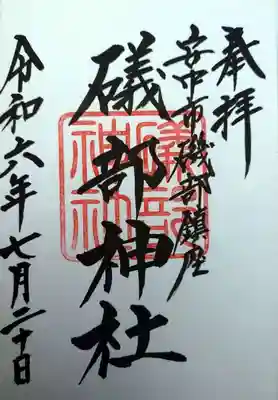 奉拝
安中市磯部鎮座
礒部神社
礒部神社
令和六年七月二十日